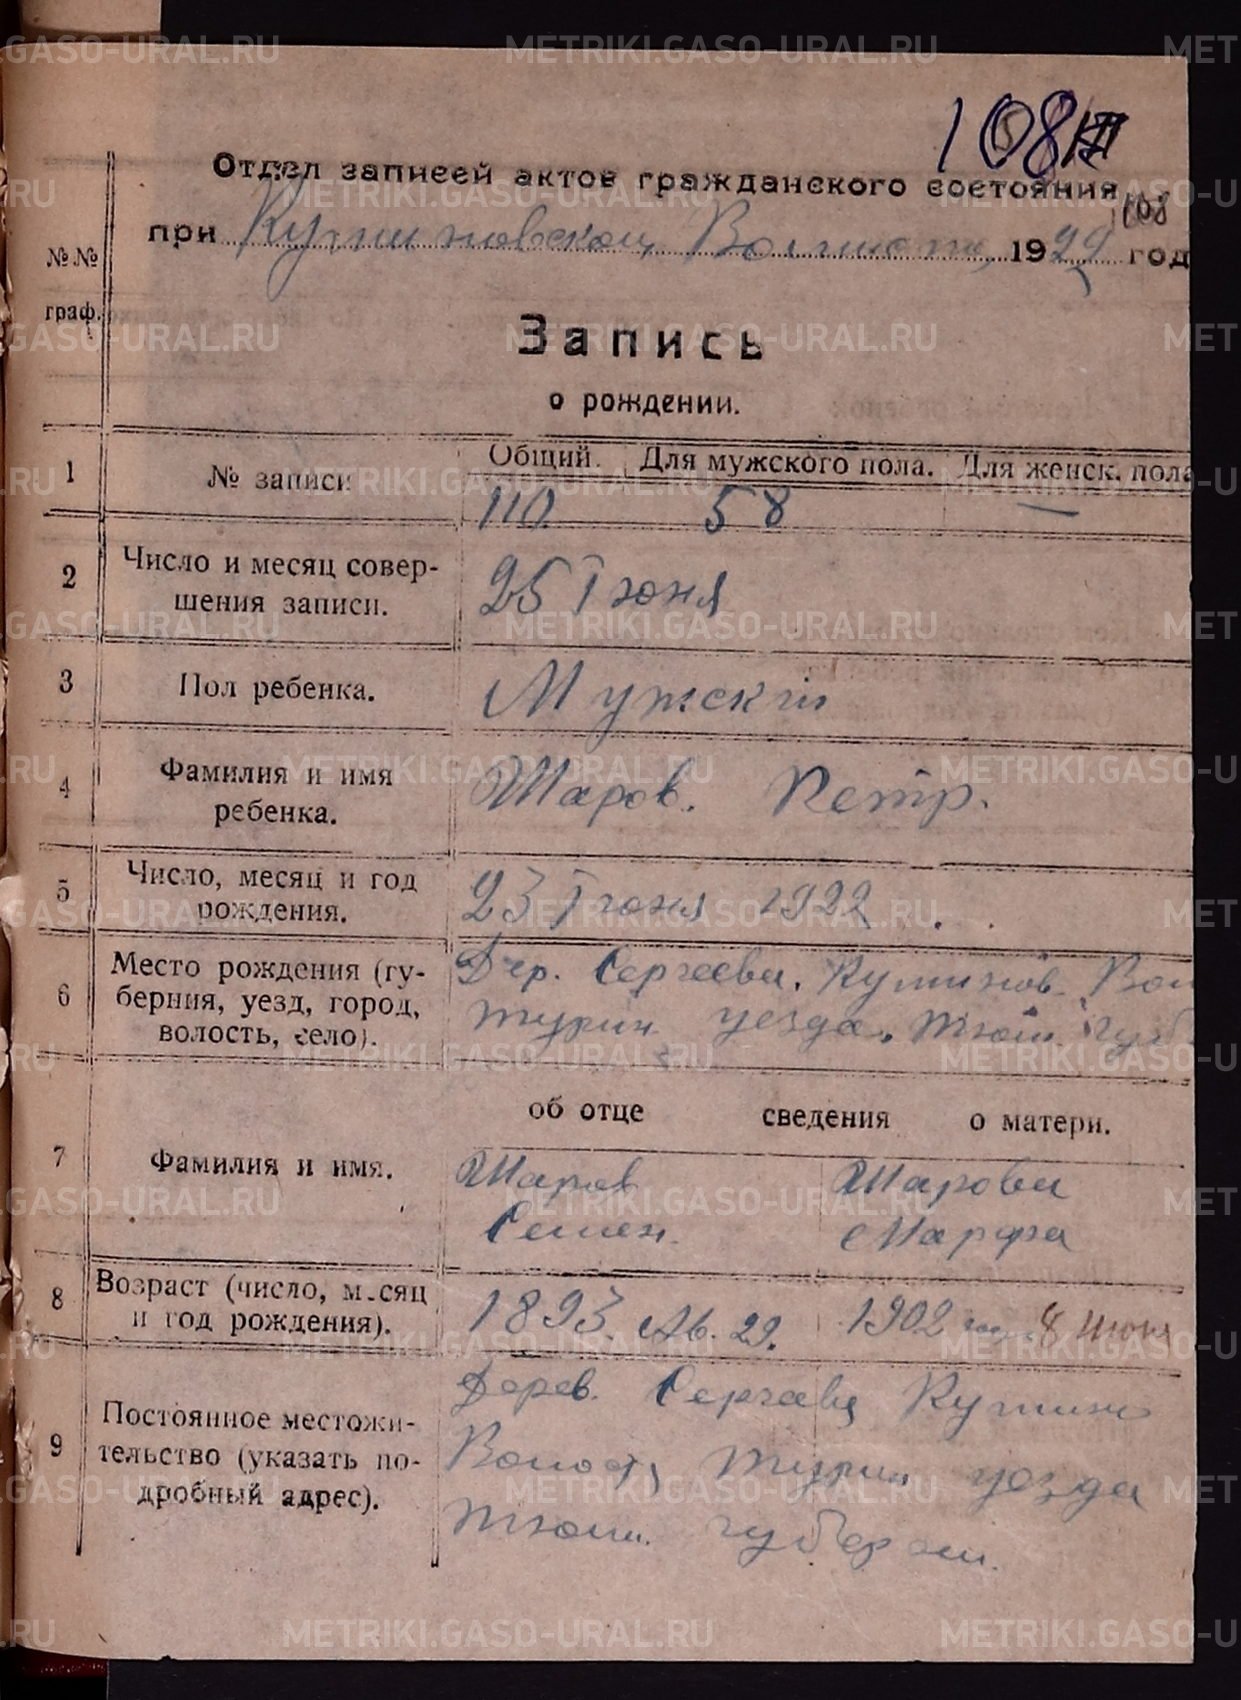 108
Отдел записей актов гражданского состояния
108
при Куминовской Волости, 1922 год
№№
граф.
Запись
о рождении.
1 № записи Общий. Для мужского пола. Для женск. пола
110. 58 —
2 Число и месяц совер-
шения записи.
25 Iюня
3 Пол ребенка. Мужский
4 Фамилия и имя
ребенка.
Шаров. Петр.
5 Число, месяц и год
рождения.
23 Iюня 1922
6 Место рождения (гу-
берния, уезд, город,
волость, село).
Дер. Сергеева. Куминов. Вол
Турин. уезда. Тюм. губ.
об отце сведения о матери.
7 Фамилия и имя.
Шаров Шарова
Семен. Марфа
8 Возраст (число, месяц
и год рождения).
1893. Ав. 29. 1902 8 июня
9 Постоянное местожи-
тельство (указать по-
дробный адрес).
Дерев. Сергеева Кумин
Волости Турин уезда
Тюм. губерни.
METRIKI.GASO-URAL.RU